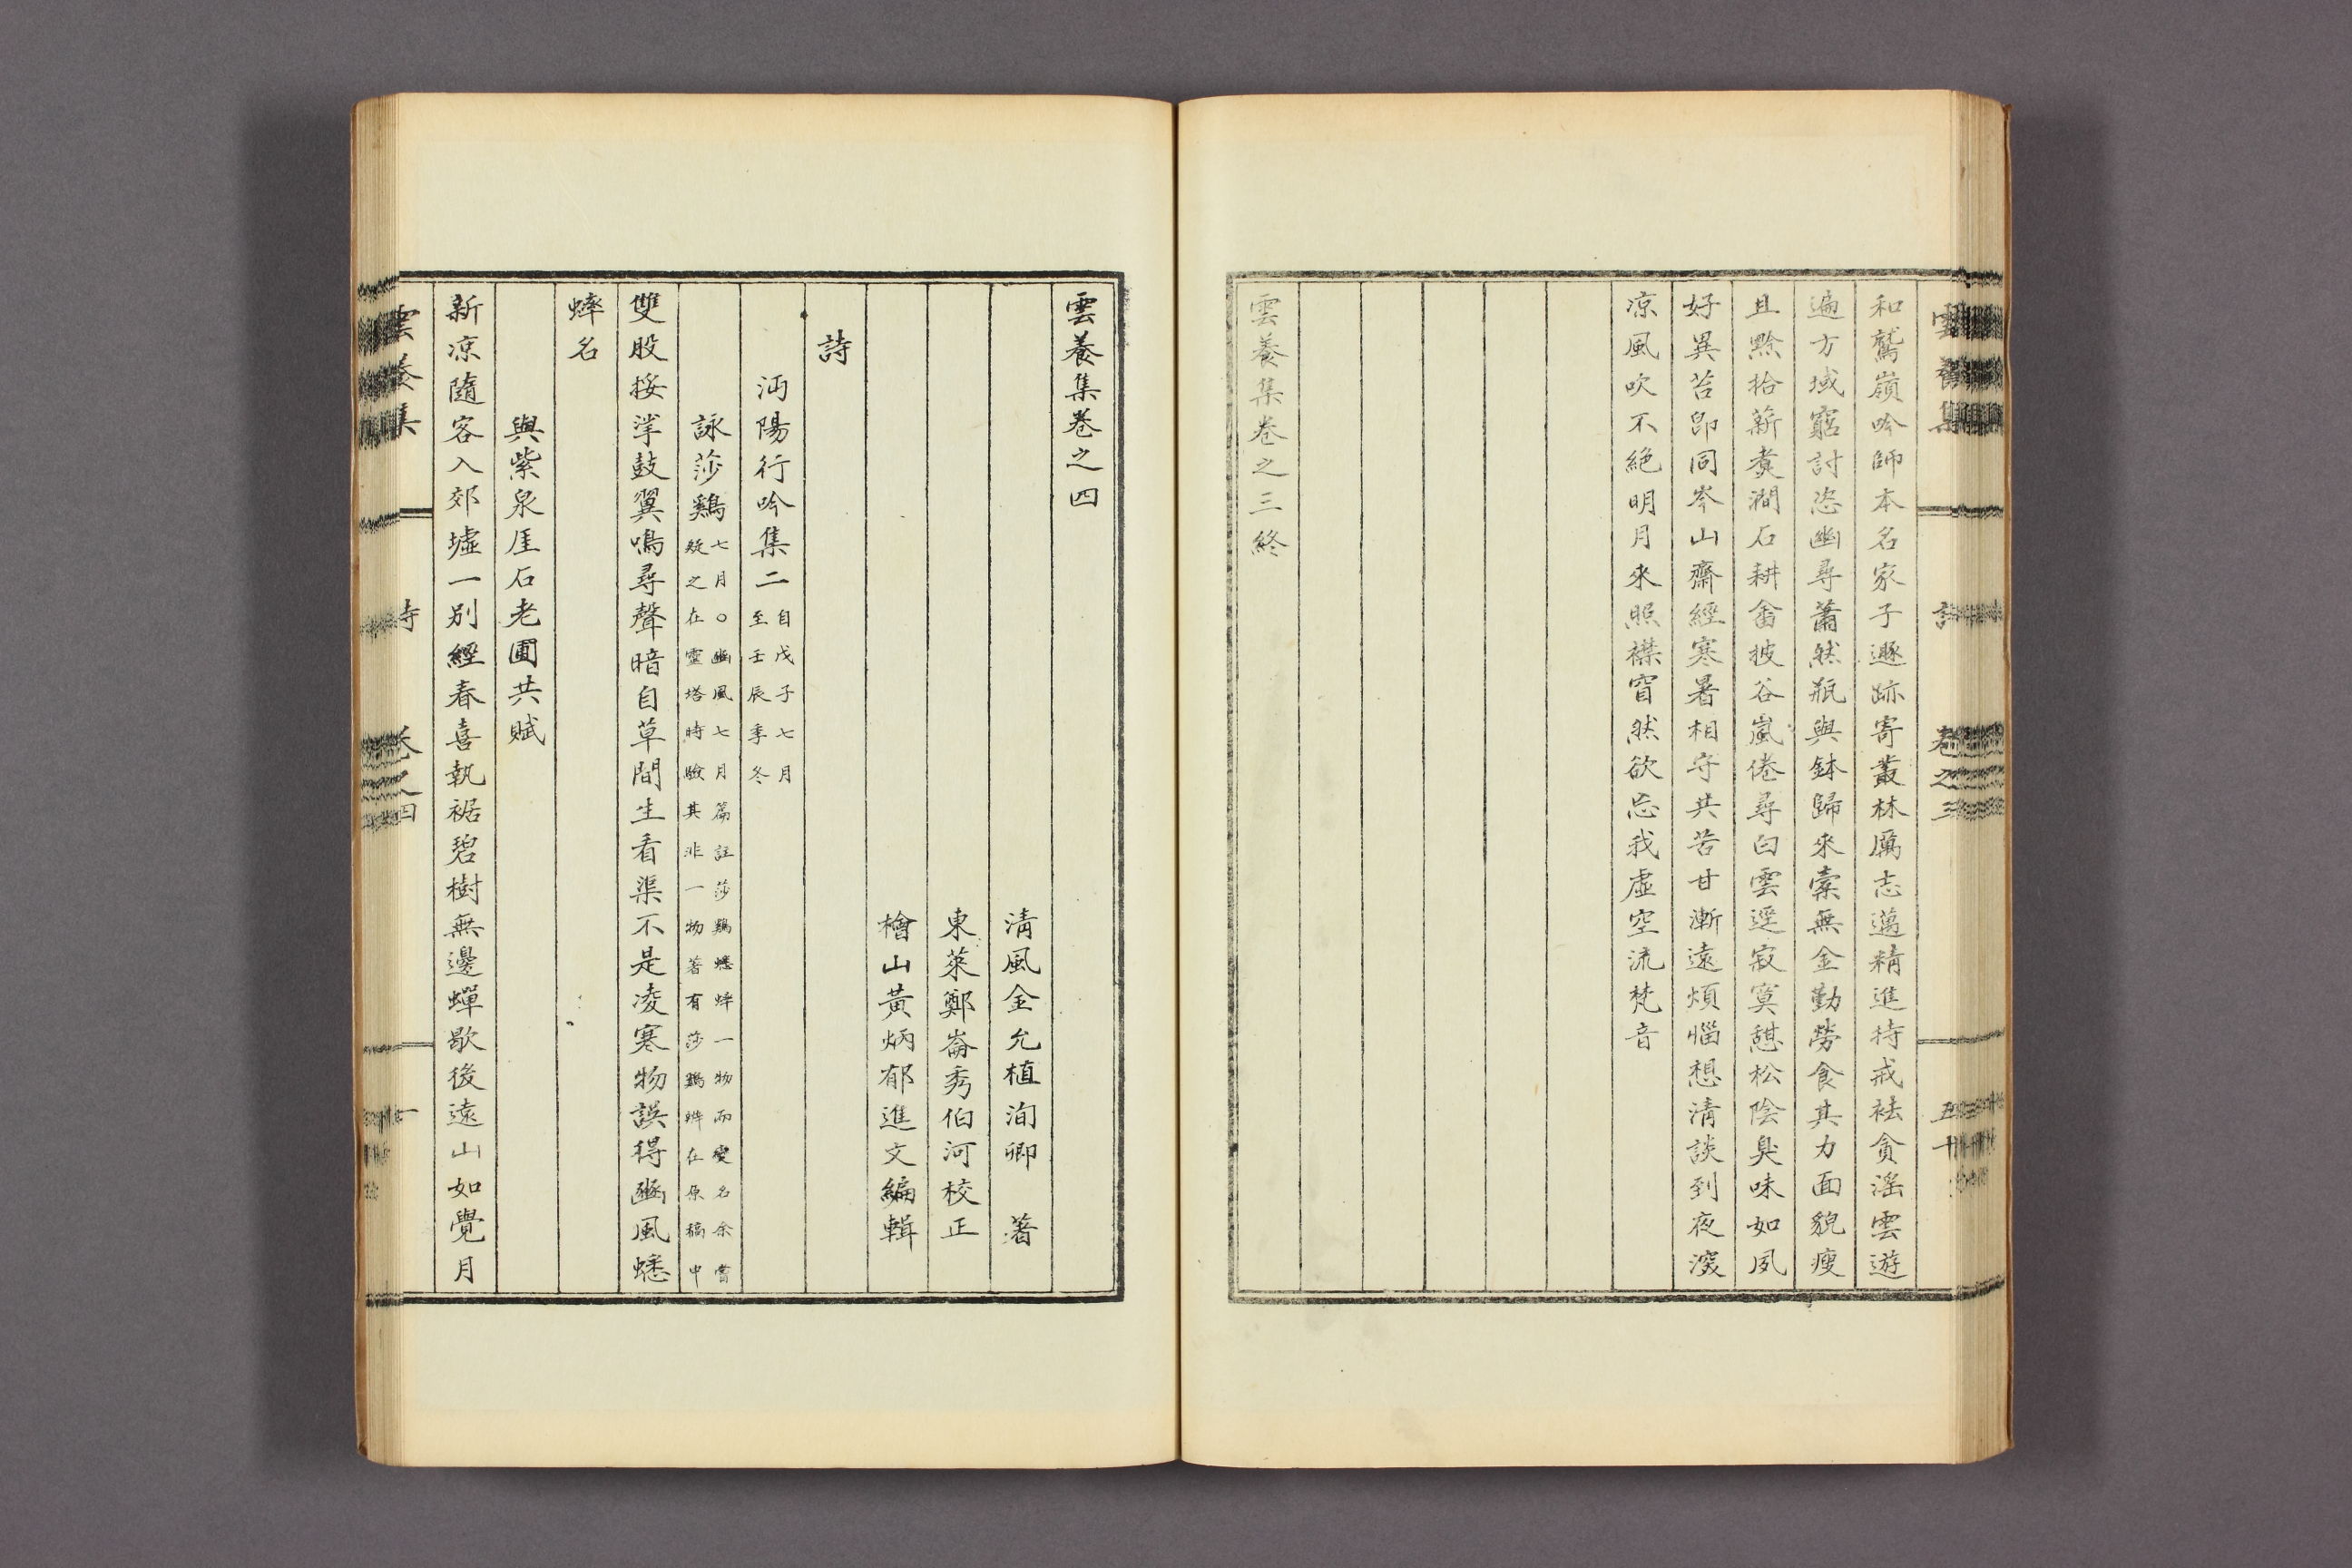 和鷲嶺吟師本名家子遯跡寄叢林厲志邁精進持戒袪貪淫雲遊
遍方域窮討恣幽尋蕭然瓶與鉢歸來橐無金勤勞食其力面貌瘦
且黔拾薪煑澗石耕畬披谷嵐倦尋白雲逕寂寞憩松陰臭味如夙
好異苔卽同岑山齋經寒暑相守共苦甘漸遠煩惱想淸談到夜深
凉風吹不絶明月來照襟窅然欲忘我虛空流梵音
雲養集卷之三終
雲養集卷之四
淸風金允植洵卿 著
東萊鄭崙秀伯河校正
檜山黃炳郁進文編輯
詩
沔陽行吟集二 自戊子七月
至壬辰季冬
詠莎鷄 七月○豳風七月篇註莎鷄蟋蟀一物而變名余嘗
疑之在靈塔時驗其非一物著有莎鷄辨在原稿中
雙股挼挲鼓翼鳴尋聲暗自草間生看渠不是凌寒物誤得豳風蟋
蟀名
與紫泉厓石老圃共賦
新凉隨客入郊墟一別經春喜執裾碧樹無邊蟬歇後遠山如覺月
雲養集 詩 卷之四 一